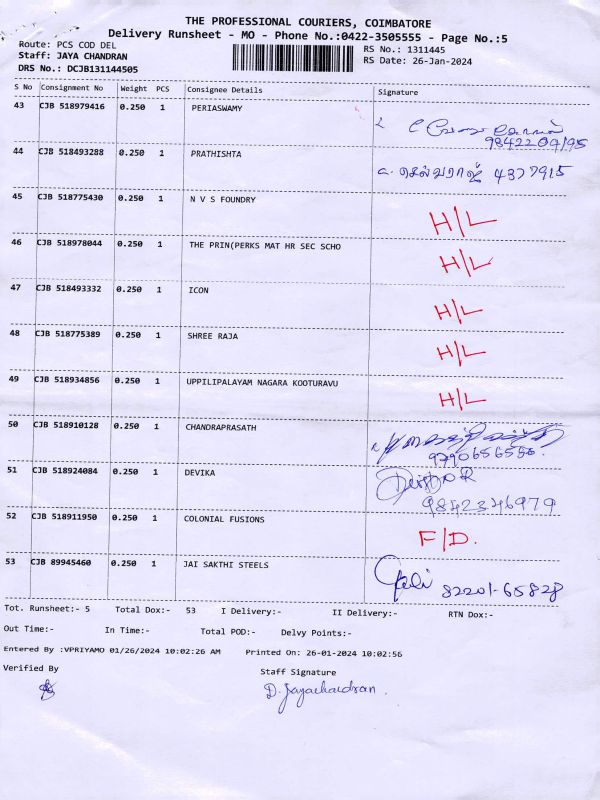 THE PROFESSIONAL COURIERS, COIMBATORE
Delivery Runsheet - MO - Phone No.:0422-3505555 - Page No.:5
Route: PCS COD DEL
RS No.: 1311445
Staff: JAYA CHANDRAN
RS Date: 26-Jan-2024
DRS No.: DCJB131144505
S No Consignment No Weight PCS Consignee Details Signature
43 CJB 518979416 0.250 1 PERIASWAMY
44 CJB 518493288 0.250 1 PRATHISHTA செல்வராஜ் 4377915
45 CJB 518775430 0.250 1 N V S FOUNDRY H/L
46 CJB 518978044 0.250 1 THE PRIN(PERKS MAT HR SEC SCHO H/L
47 CJB 518493332 0.250 1 ICON H/L
48 CJB 518775389 0.250 1 SHREE RAJA H/L
49 CJB 518934856 0.250 1 UPPILIPALAYAM NAGARA KOOTURAVU H/L
50 CJB 518910128 0.250 1 CHANDRAPRASATH
51 CJB 518924084 0.250 1 DEVIKA
9842346979
52 CJB 518911950 0.250 1 COLONIAL FUSIONS F/D.
53 CJB 89945460 0.250 1 JAI SAKTHI STEELS 82201-65828
Tot. Runsheet:- 5 Total Dox:- 53 I Delivery:- II Delivery:- RTN Dox:-
Out Time:- In Time:- Total POD:- Delvy Points:-
Entered By :VPRIYAMO 01/26/2024 10:02:26 AM Printed On: 26-01-2024 10:02:56
Verified By Staff Signature
D. Jayachandran.